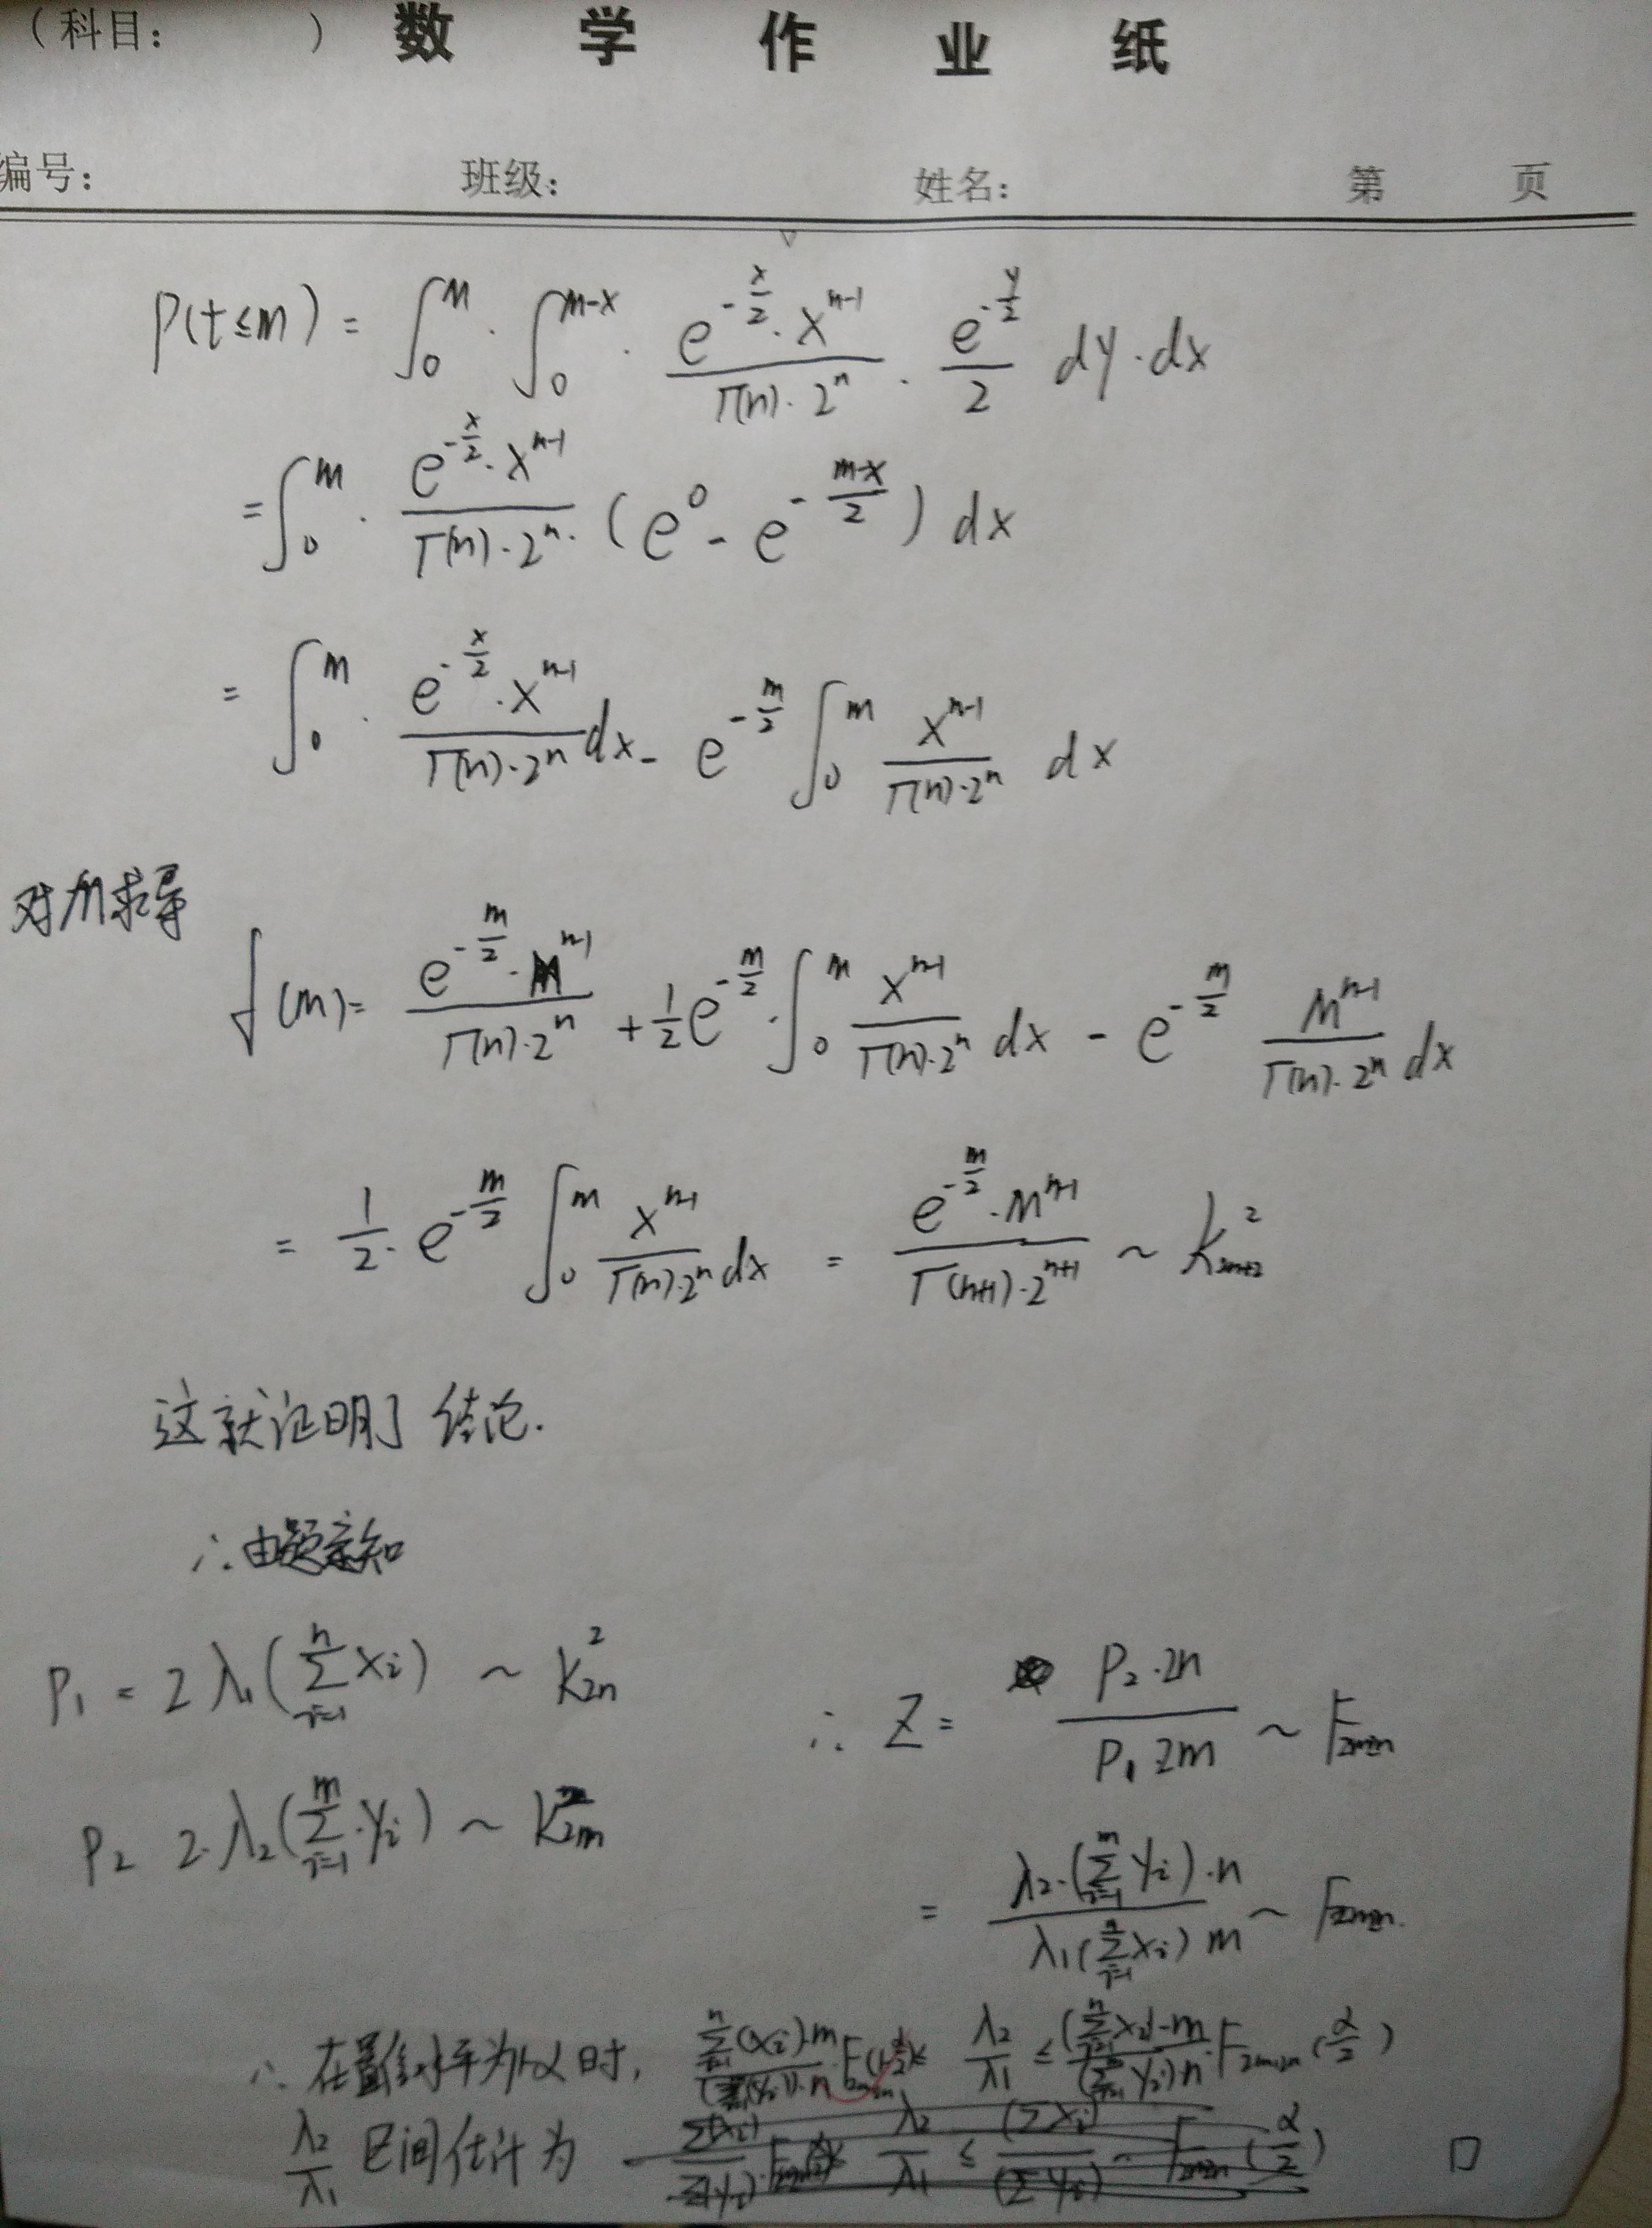 （科目：　　　）数 学 作 业 纸
编号：　班级：　姓名：　第　页
P(t≤m) = ∫₀^m · ∫₀^{m-x} · \frac{e^{-\frac{x}{2}}·x^{n-1}}{Γ(n)·2^n} · \frac{e^{-\frac{y}{2}}}{2} dy·dx
= ∫₀^m · \frac{e^{-\frac{x}{2}}·x^{n-1}}{Γ(n)·2^n} · (e^0 - e^{-\frac{m-x}{2}}) dx
= ∫₀^m · \frac{e^{-\frac{x}{2}}·x^{n-1}}{Γ(n)·2^n} dx - e^{-\frac{m}{2}} ∫₀^m \frac{x^{n-1}}{Γ(n)·2^n} dx
对m求导
f(m) = \frac{e^{-\frac{m}{2}}·m^{n-1}}{Γ(n)·2^n} + \frac{1}{2}e^{-\frac{m}{2}}·∫₀^m \frac{x^{n-1}}{Γ(n)·2^n} dx - e^{-\frac{m}{2}} \frac{m^{n-1}}{Γ(n)·2^n} dx
= \frac{1}{2}·e^{-\frac{m}{2}} ∫₀^m \frac{x^{n-1}}{Γ(n)·2^n} dx = \frac{e^{-\frac{m}{2}}·m^{n+1}}{Γ(n+1)·2^{n+1}} ~ K²_{2n+2}
这就证明了结论.
∴由题意知
P₁ = 2λ₁(\sum_{i=1}^{n} x_i) ~ K²_{2n}
∴ Z = \frac{P₂·2n}{P₁ 2m} ~ F_{2m,2n}
P₂ 2·λ₂(\sum_{i=1}^{m}·y_i) ~ K²_{2m}
= \frac{λ₂·(\sum_{i=1}^{m} y_i)·n}{λ₁(\sum_{i=1}^{n} x_i) m} ~ F_{2m,2n}.
∴ 在置信水平为1-α时, \frac{\sum_{i=1}^{n}(x_i)·m}{(\sum_{i=1}^{m}(y_i))·n}·F_{2m,2n}(1-\frac{α}{2}) ≤ \frac{λ₂}{λ₁} ≤ \frac{(\sum_{i=1}^{n} x_i)·m}{(\sum_{i=1}^{m} y_i)·n}·F_{2m,2n}(\frac{α}{2})
\frac{λ₂}{λ₁} 区间估计为 □